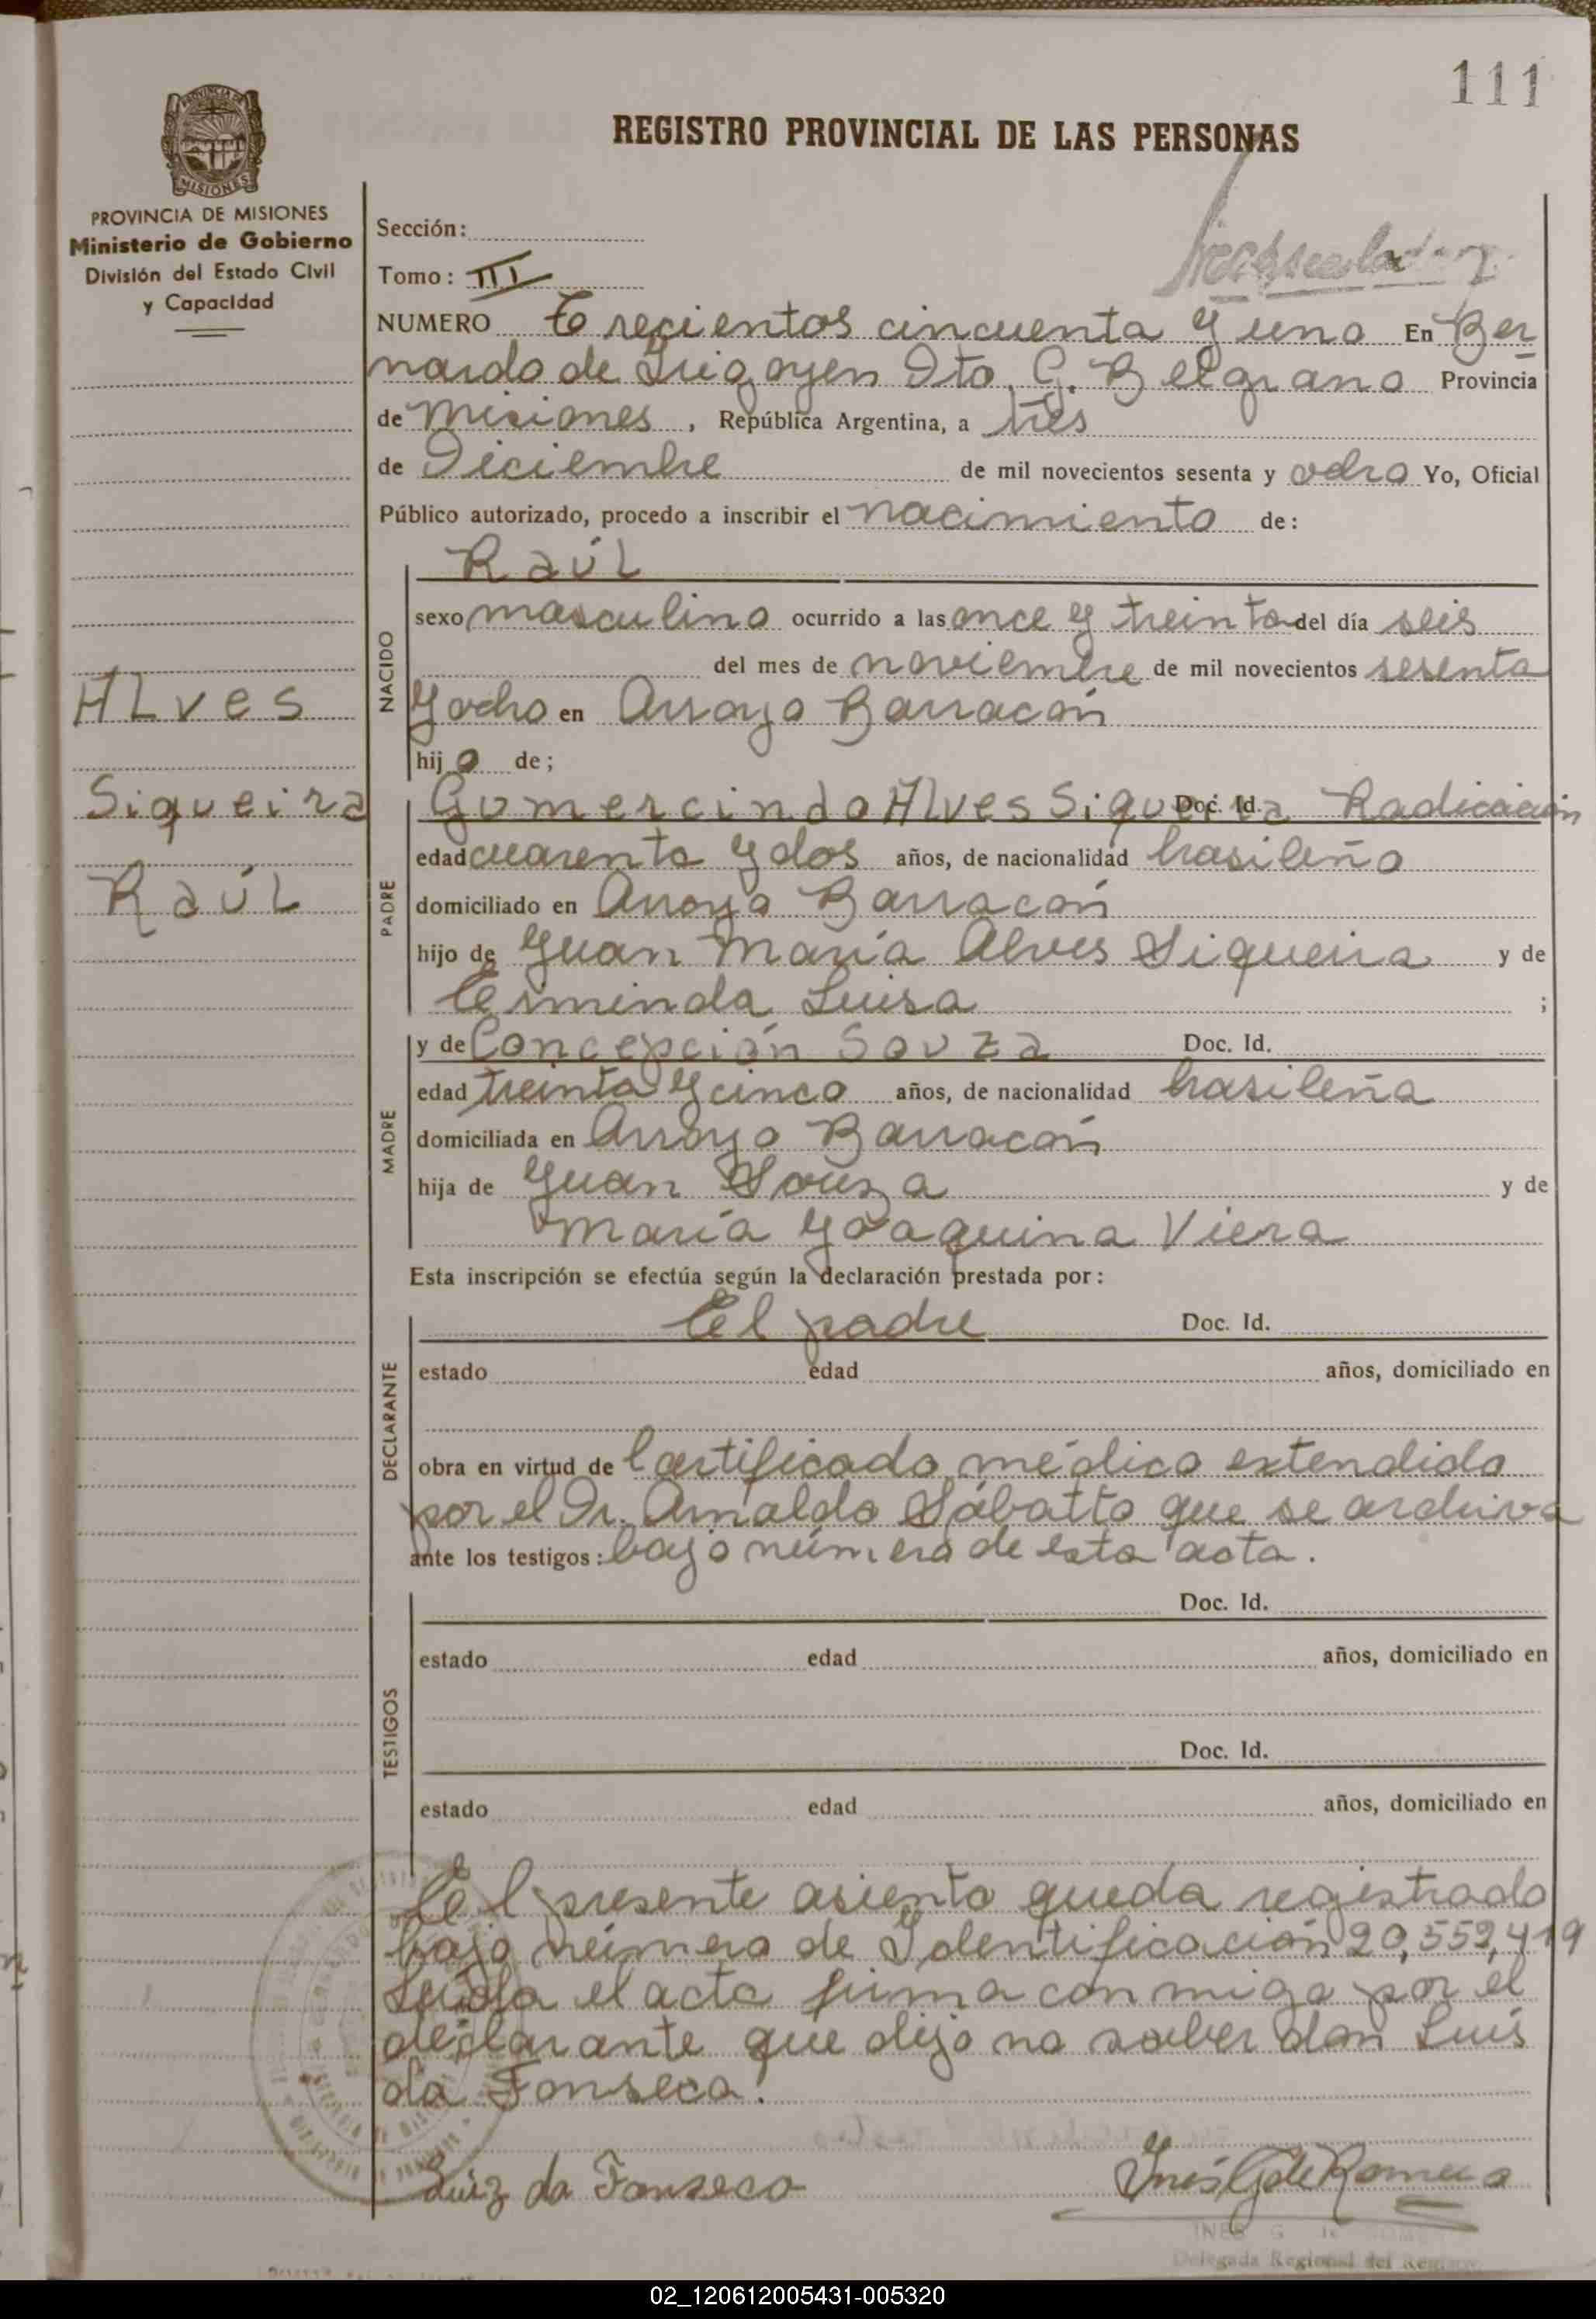 111
REGISTRO PROVINCIAL DE LAS PERSONAS
PROVINCIA DE MISIONES
Ministerio de Gobierno
División del Estado Civil
y Capacidad
Sección:
Tomo: III
NUMERO Trecientos cincuenta y uno En Ber
nardo de Irigoyen Dto. G. Belgrano Provincia
de Misiones, República Argentina, a tres
de Diciembre de mil novecientos sesenta y ocho Yo, Oficial
Público autorizado, procedo a inscribir el nacimiento de:
Raúl
NACIDO
sexo masculino ocurrido a las once y treinta del día seis
del mes de noviembre de mil novecientos sesenta
y ocho en Arroyo Barracón
hijo de;
Alves
Siqueira
Raúl
PADRE
Gumercindo Alves Siqueira Doc. Id. Radicación
edad cuarenta y dos años, de nacionalidad brasileño
domiciliado en Arroyo Barracón
hijo de Juan María Alves Siqueira y de
Erminda Luisa ;
MADRE
y de Concepción Souza Doc. Id.
edad treinta y cinco años, de nacionalidad brasileña
domiciliada en Arroyo Barracón
hija de Juan Souza y de
María Joaquina Viera
Esta inscripción se efectúa según la declaración prestada por:
DECLARANTE
El padre Doc. Id.
estado edad años, domiciliado en
obra en virtud de Certificado médico extendido
por el Dr. Arnaldo Sábatto que se archiva
ante los testigos: bajo número de esta acta.
TESTIGOS
Doc. Id.
estado edad años, domiciliado en
Doc. Id.
estado edad años, domiciliado en
El presente asiento queda registrado
bajo número de Identificación 20,559,419
Leída el acta firma conmigo por el
declarante que dijo no saber don Luis
da Fonseca.
Luiz da Fonseca
Inés G de Romero
INES G
Delegada Regional del
02_120612005431-005320